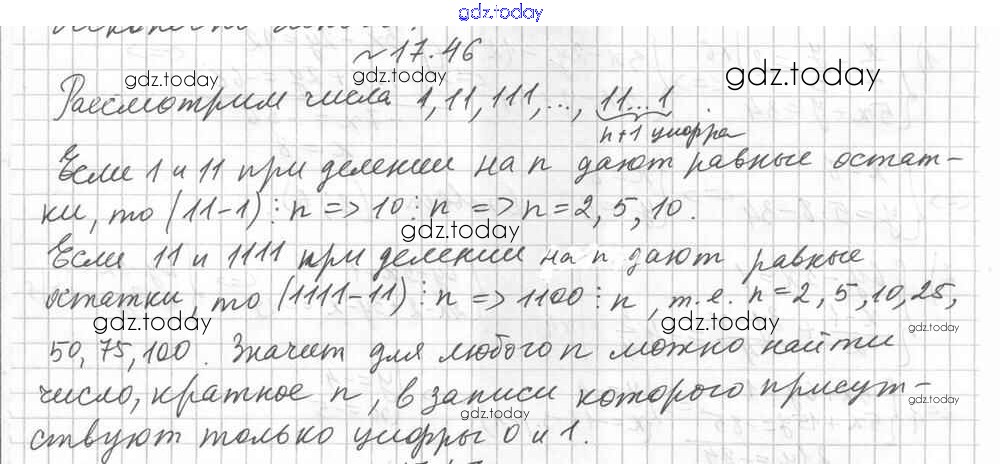 gdz.today
№17.46
gdz.today gdz.today gdz.today
Рассмотрим числа 1, 11, 111, ..., 11...1.
n+1 цифра
Если 1 и 11 при делении на n дают равные остат-
ки, то (11-1)⋮n => 10⋮n => n=2, 5, 10.
gdz.today
Если 11 и 1111 при делении на n дают равные
остатки, то (1111-11)⋮n => 1100⋮n, т.е. n=2, 5, 10, 25,
gdz.today gdz.today gdz.today
50, 75, 100. Значит для любого n можно найти
число, кратное n, в записи которого присут-
gdz.today gdz.today
ствуют только цифры 0 и 1.